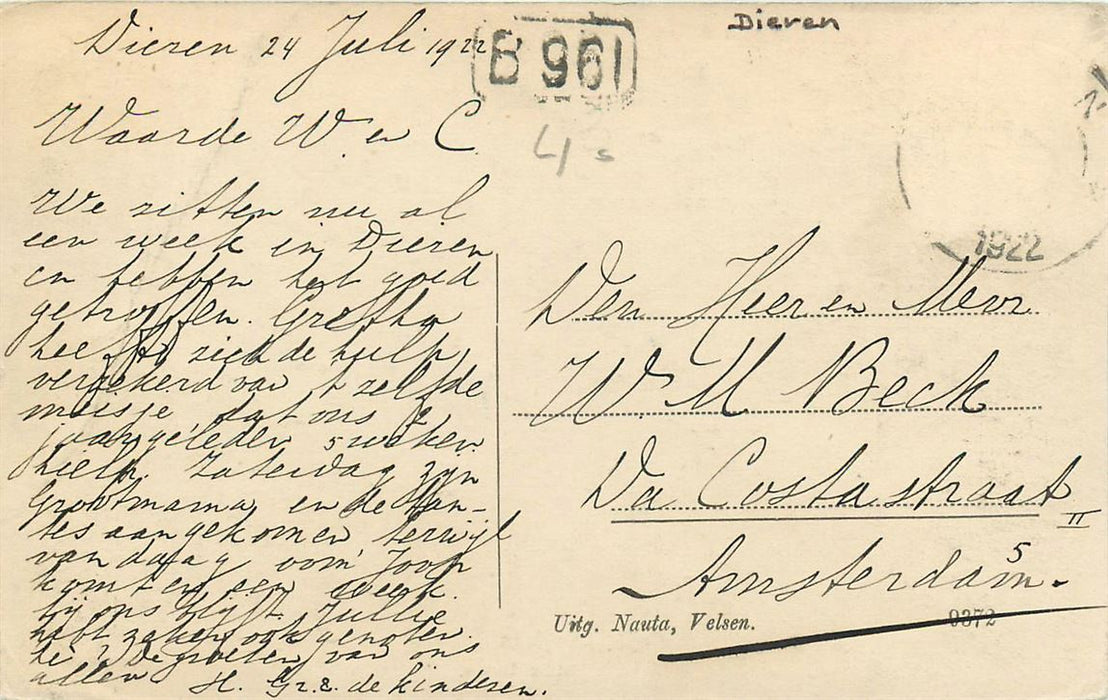 Dieren
Dieren 24 Juli 1922
B 961
4
Waarde W. en C.
We zitten nu al
een week in Dieren
en hebben het goed
getroffen. Gretha
heeft zich de hulp
verzekerd van 't zelfde
meisje dat ons 2
jaar geleden 5 weken
hielp. Zaterdag zijn
Grootmama en de tan-
tes aangekomen terwijl
vandaag oom Joop
komt en een week
bij ons blijft. Jullie
hebt zeker ook genoten
De groeten van ons
allen H. Gr. & de kinderen.
1922
Den Heer en Mevr
W. M Beck
Da Costastraat
II
5
Amsterdam.
Uitg. Nauta, Velsen.
9372